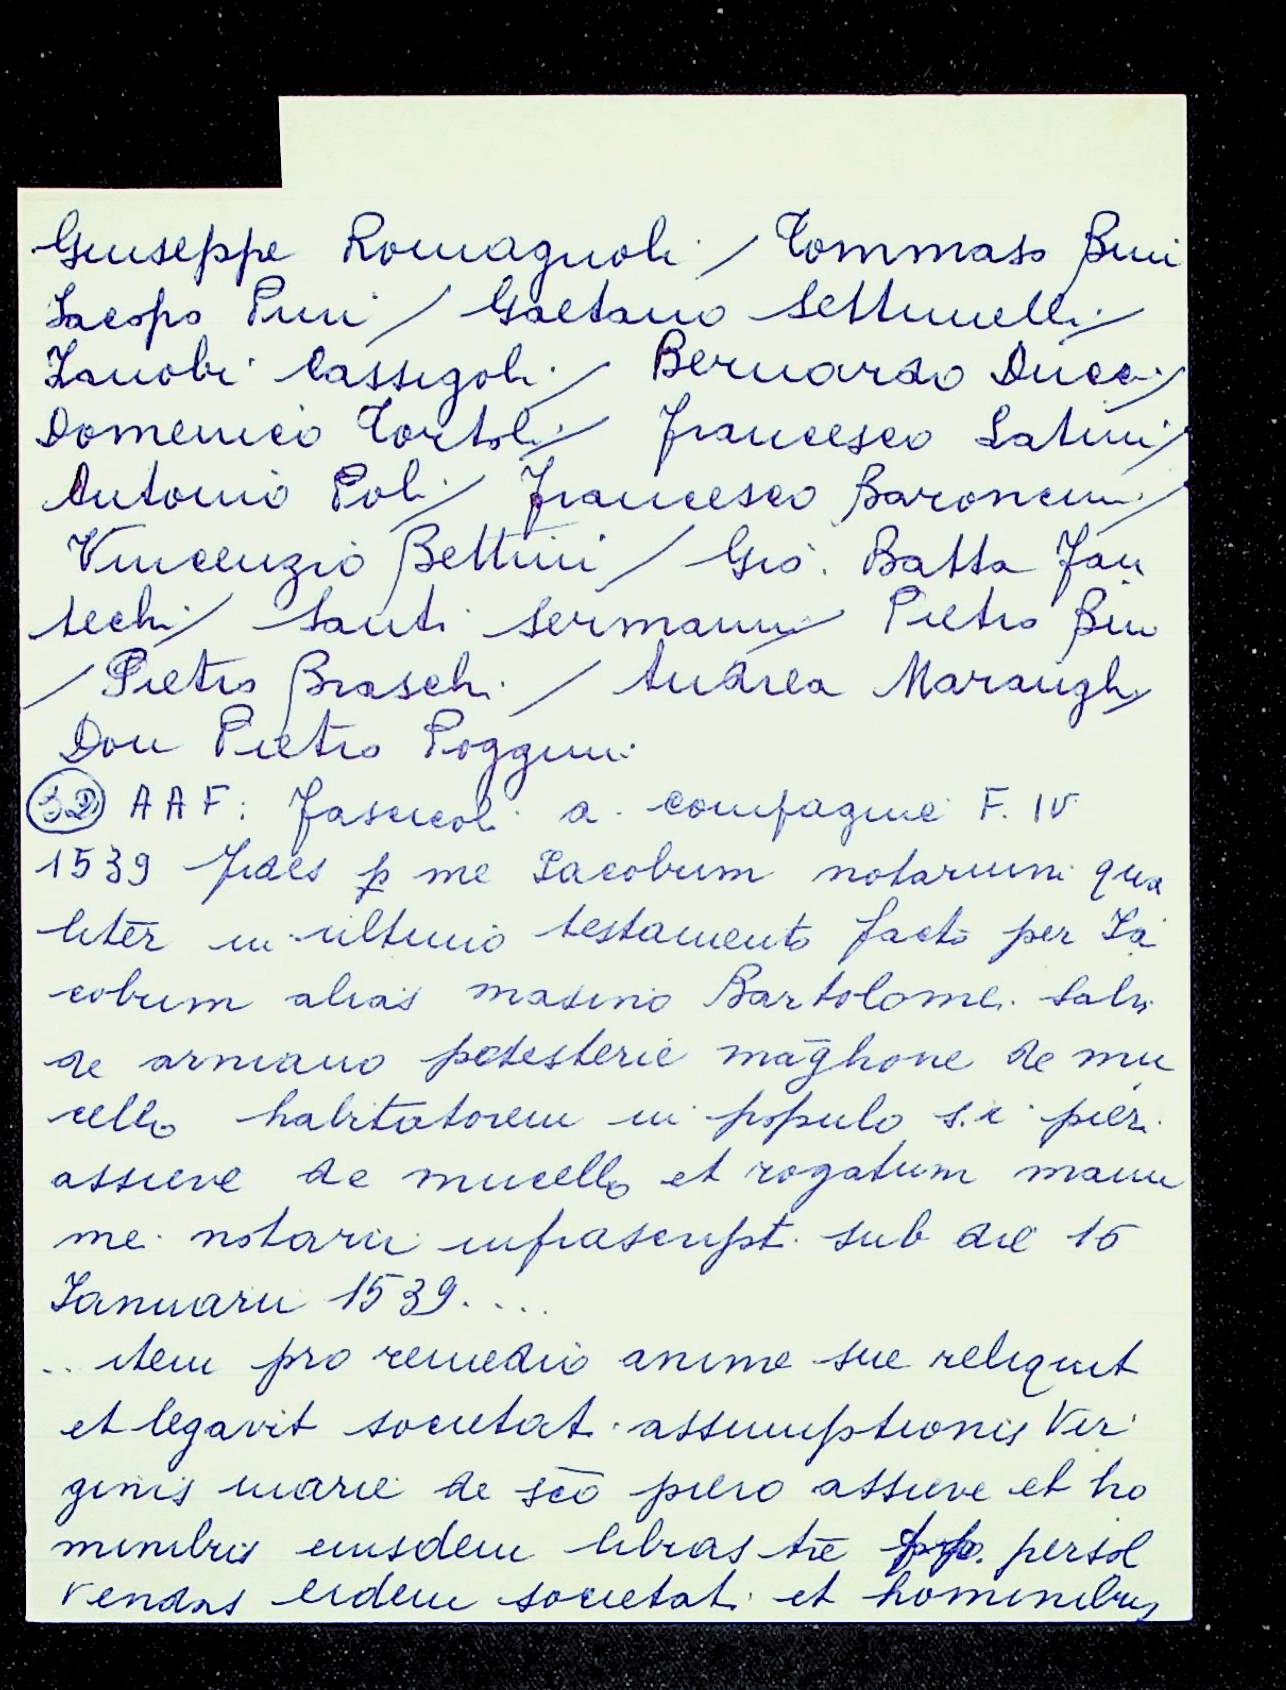 Giuseppe Romagnoli / Tommaso Bini
Iacopo Pini / Gaetano Settimelli /
Zanobi Cassigoli / Bernardo Ducci /
Domenico Tortoli / Francesco Latini /
Antonio Poli / Francesco Baroncini /
Vincenzio Bettini / Gio. Batta Fan
techi / Santi Sermanni / Pietro Bini
/ Pietro Braschi / Andrea Maranghi /
Don Pietro Poggini
AAF: Fascicoli a compagnie F. IV
1539 fides p me Iacobum notarium qua
liter in ultimo testamento facto per Ia
cobum alias masino Bartolomei Salvi
de armiano potesterie mãghone de mu
cello habitatorem in populo s.i pieri
assieve de mucello et rogatum manu
mei notarii infrascripti sub die 16
Ianuarii 1539....
.. item pro remedio anime sue reliquit
et legavit societati assumptionis Vir
ginis marie de scō piero assieve et ho
minibus eiusdem libras trē persol
vendas eidem societati et hominibus